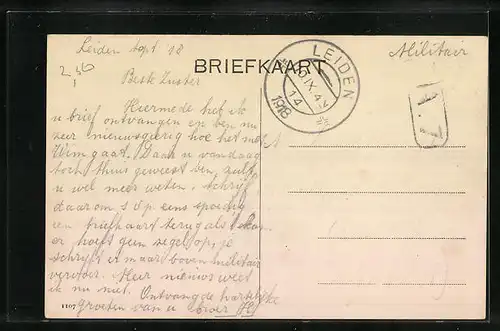 Leiden Sept 18
Militair
2,50
BRIEFKAART
LEIDEN
IX.4
14
1918
Beste Zuster
Hiermede heb ik
u brief ontvangen en ben nu
zeer nieuwsgierig hoe het met
Wim gaat. Daar u vandaag
toch thuis geweest ben, zult
u wel meer weten. Schrijf
daarom s.d.p. eens spoedig
een briefkaart terug als 't kan.
er hoeft geen zegel op, je
schrijft er maar boven militair
vervoer. Hier nieuws weet
ik nu niet. Ontvangde hartelijke
groeten van u
1107